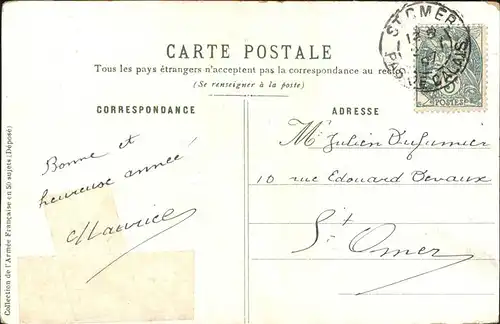 CARTE POSTALE
Tous les pays étrangers n'acceptent pas la correspondance au recto
(Se renseigner à la poste)
CORRESPONDANCE
ADRESSE
Bonne et
heureuse année
Maurice
Mr Julien Dufumier
10 rue Edouard Devaux
St Omer
ST OMER
PAS-DE-CALAIS
POSTES
Collection de l'Armée Française en 50 sujets (Déposé)